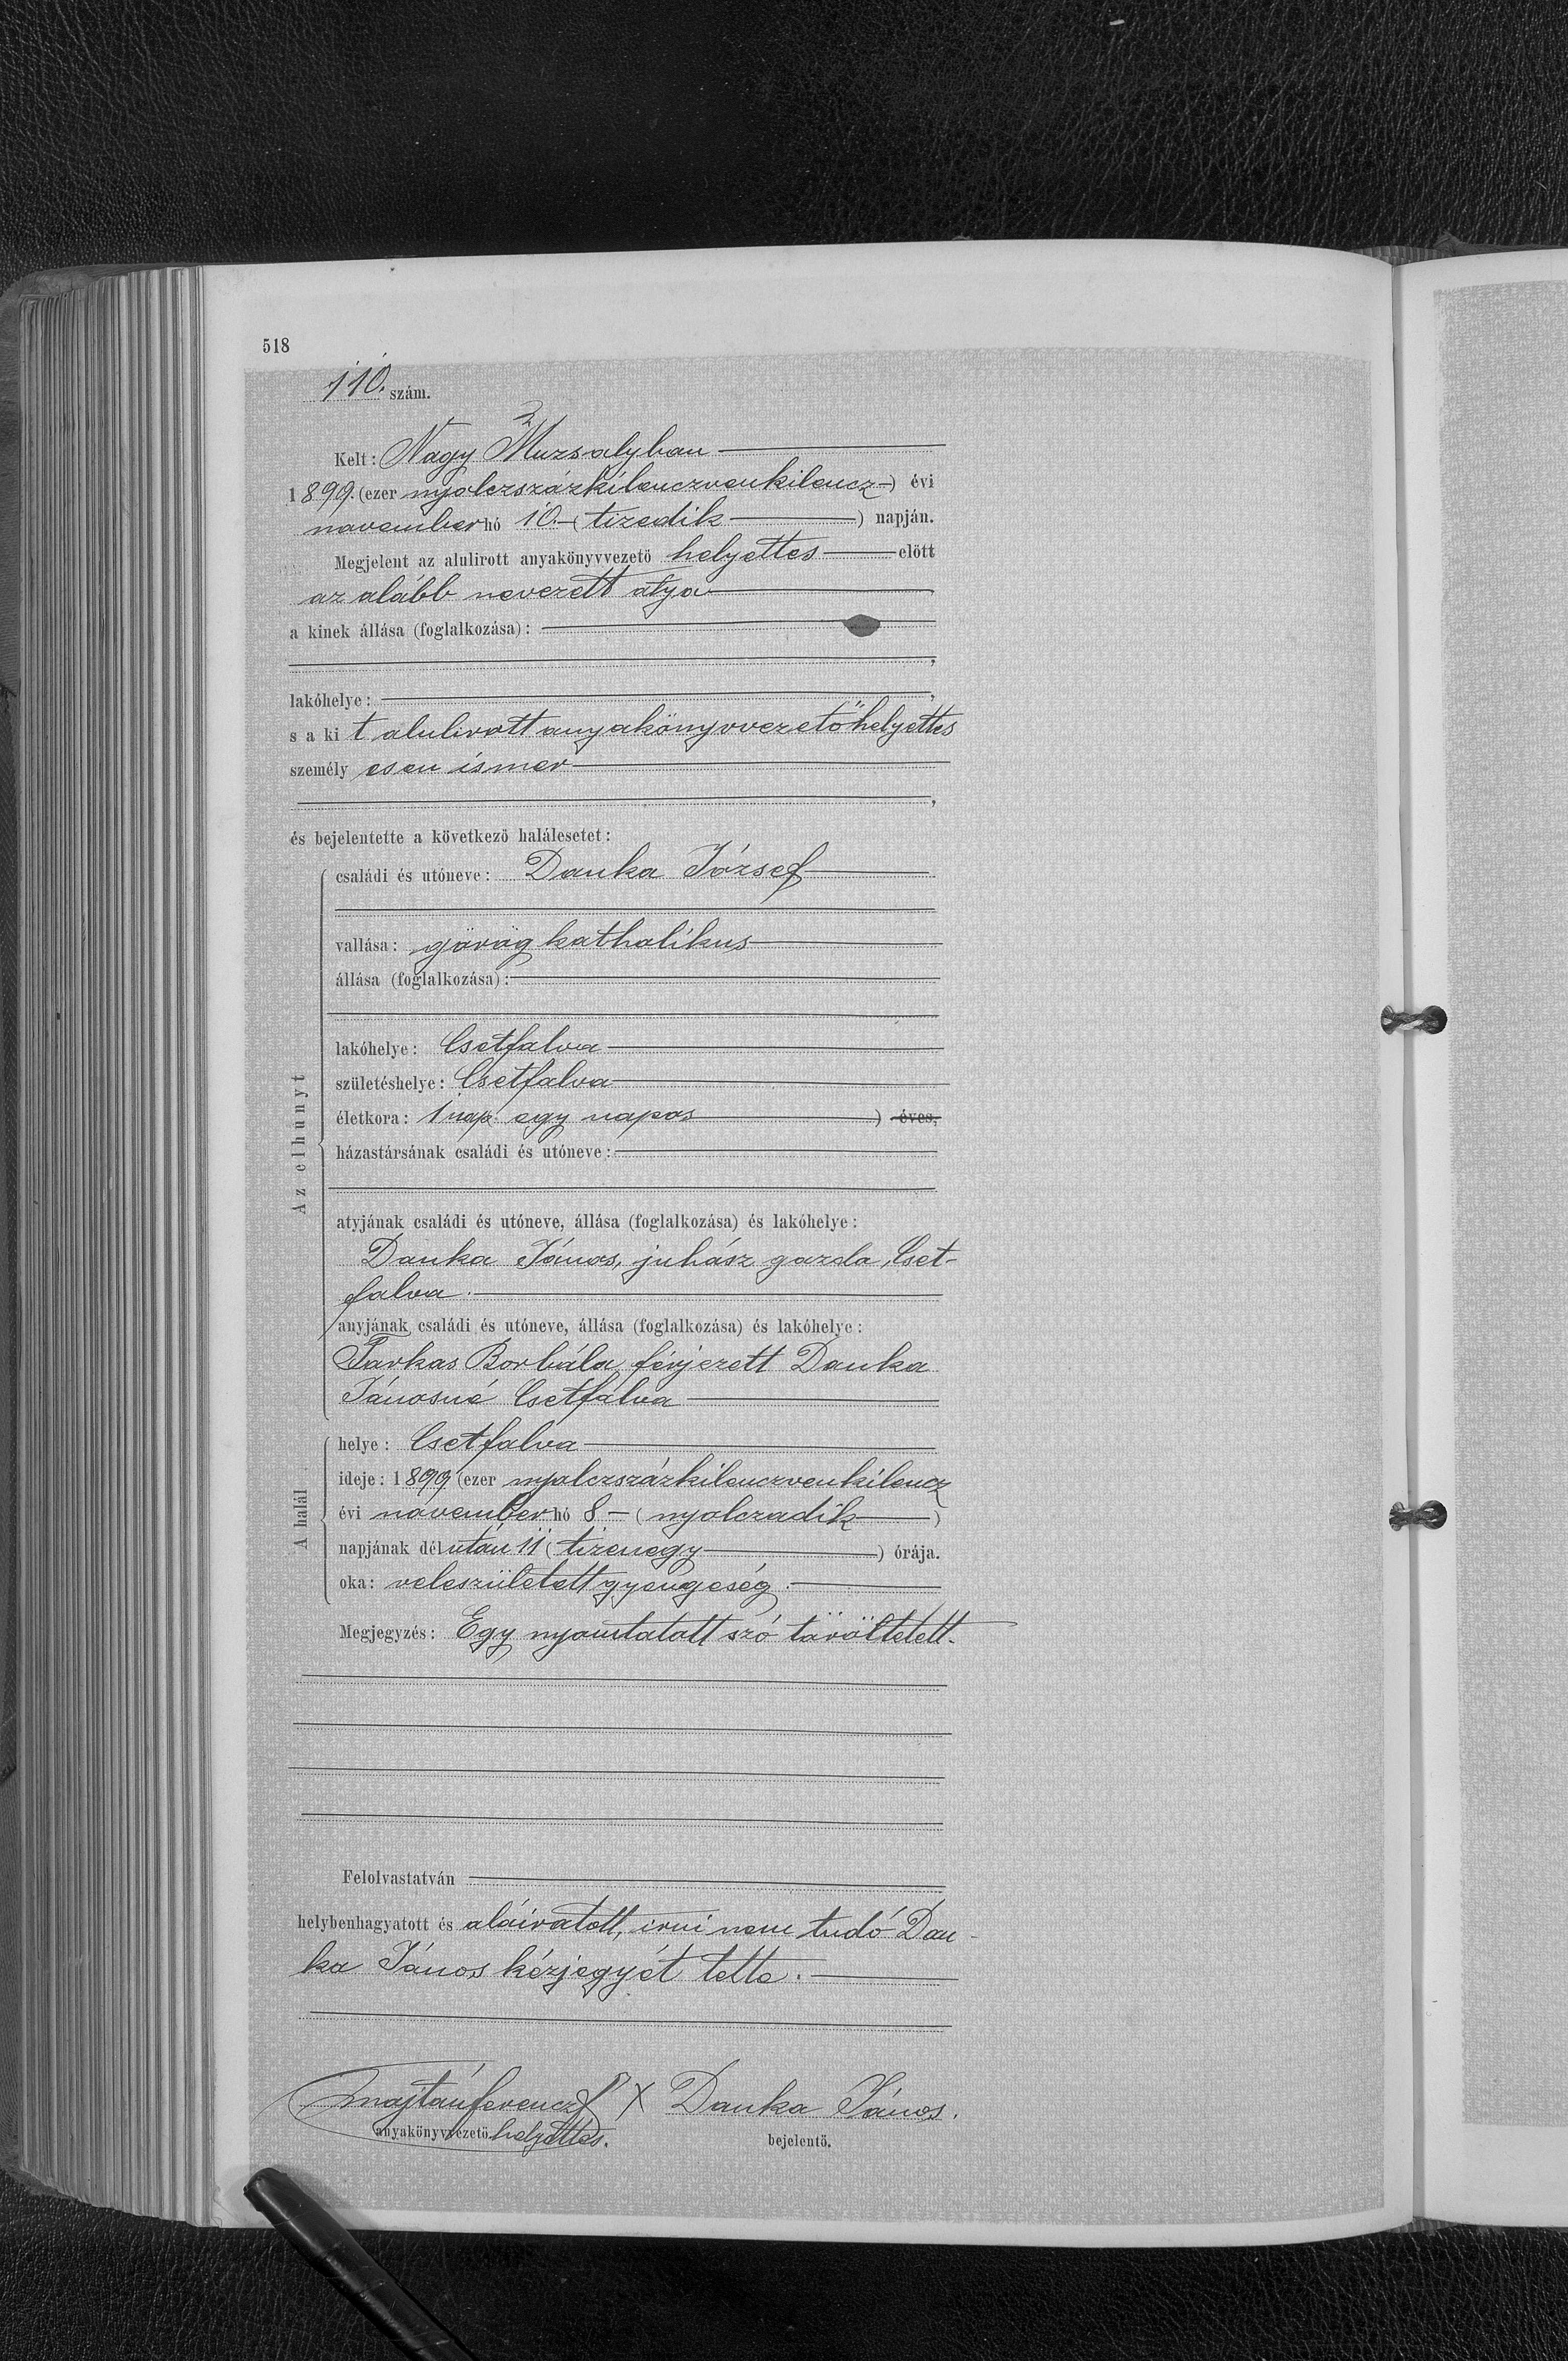 518
110. szám.
Kelt: Nagy Muzsalyban
1899. (ezer nyolczszázkilenczvenkilencz) évi
november hó 10. (tizedik) napján.
Megjelent az alulirott anyakönyvvezető helyettes előtt
az alább nevezett atya
a kinek állása (foglalkozása):
lakóhelye:
s a kit alulirott anyakönyvvezetőhelyettes
személyesen ismer
és bejelentette a következő halálesetet:
Az elhunyt
családi és utóneve: Danka József
vallása: görög katholikus
állása (foglalkozása):
lakóhelye: Csetfalva
születéshelye: Csetfalva
életkora: 1 nap egy napos ) éves,
házastársának családi és utóneve:
atyjának családi és utóneve, állása (foglalkozása) és lakóhelye:
Danka János, juhász gazda, Cset-
falva.
anyjának családi és utóneve, állása (foglalkozása) és lakóhelye:
Farkas Borbála férjezett Danka
Jánosné Csetfalva
A halál
helye: Csetfalva
ideje: 1899 (ezer nyolczszázkilenczvenkilencz
évi november hó 8 – (nyolczadik)
napjának délután 11 (tizenegy) órája.
oka: veleszületett gyengeség.
Megjegyzés: Egy nyomtatott szó töröltetett.
Felolvastatván
helybenhagyatott és aláiratott, irni nem tudó Dan-
ka János kézjegyét tette.
Majtán Ferencz X Danka János.
anyakönyvvezető helyettes. bejelentő.